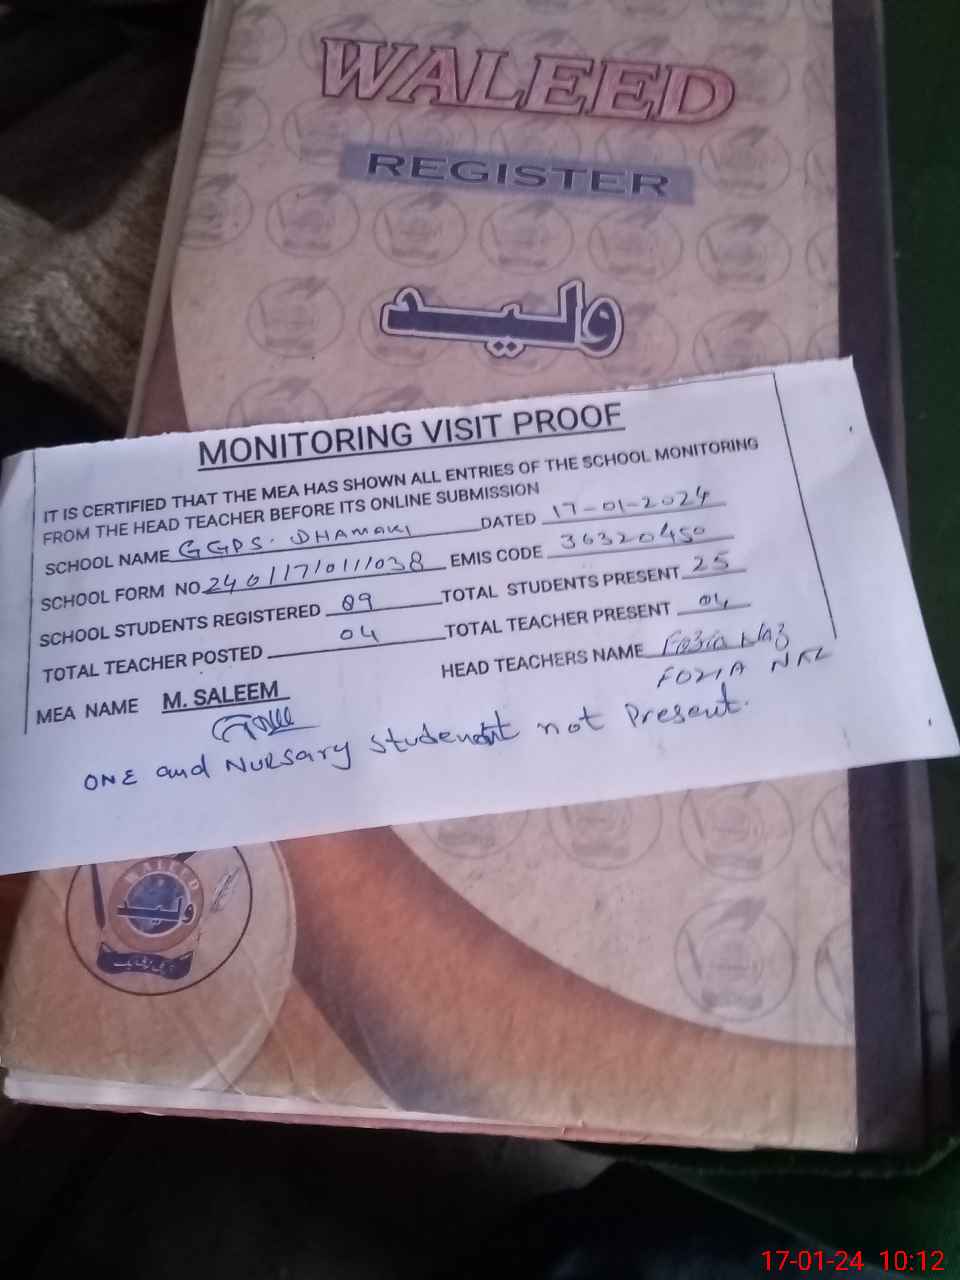 WALEED
REGISTER
وليد
MONITORING VISIT PROOF
IT IS CERTIFIED THAT THE MEA HAS SHOWN ALL ENTRIES OF THE SCHOOL MONITORING
FROM THE HEAD TEACHER BEFORE ITS ONLINE SUBMISSION
SCHOOL NAME GGPS. DHAMAKI DATED 17-01-2024
SCHOOL FORM NO 240117/0111/038 EMIS CODE 36320450
SCHOOL STUDENTS REGISTERED 89 TOTAL STUDENTS PRESENT 25
TOTAL TEACHER POSTED 04 TOTAL TEACHER PRESENT 04
MEA NAME M. SALEEM HEAD TEACHERS NAME Fozia Naz
FOZIA
ONE and NURSARY Student not Present.
WALEED
وليد
17-01-24 10:12